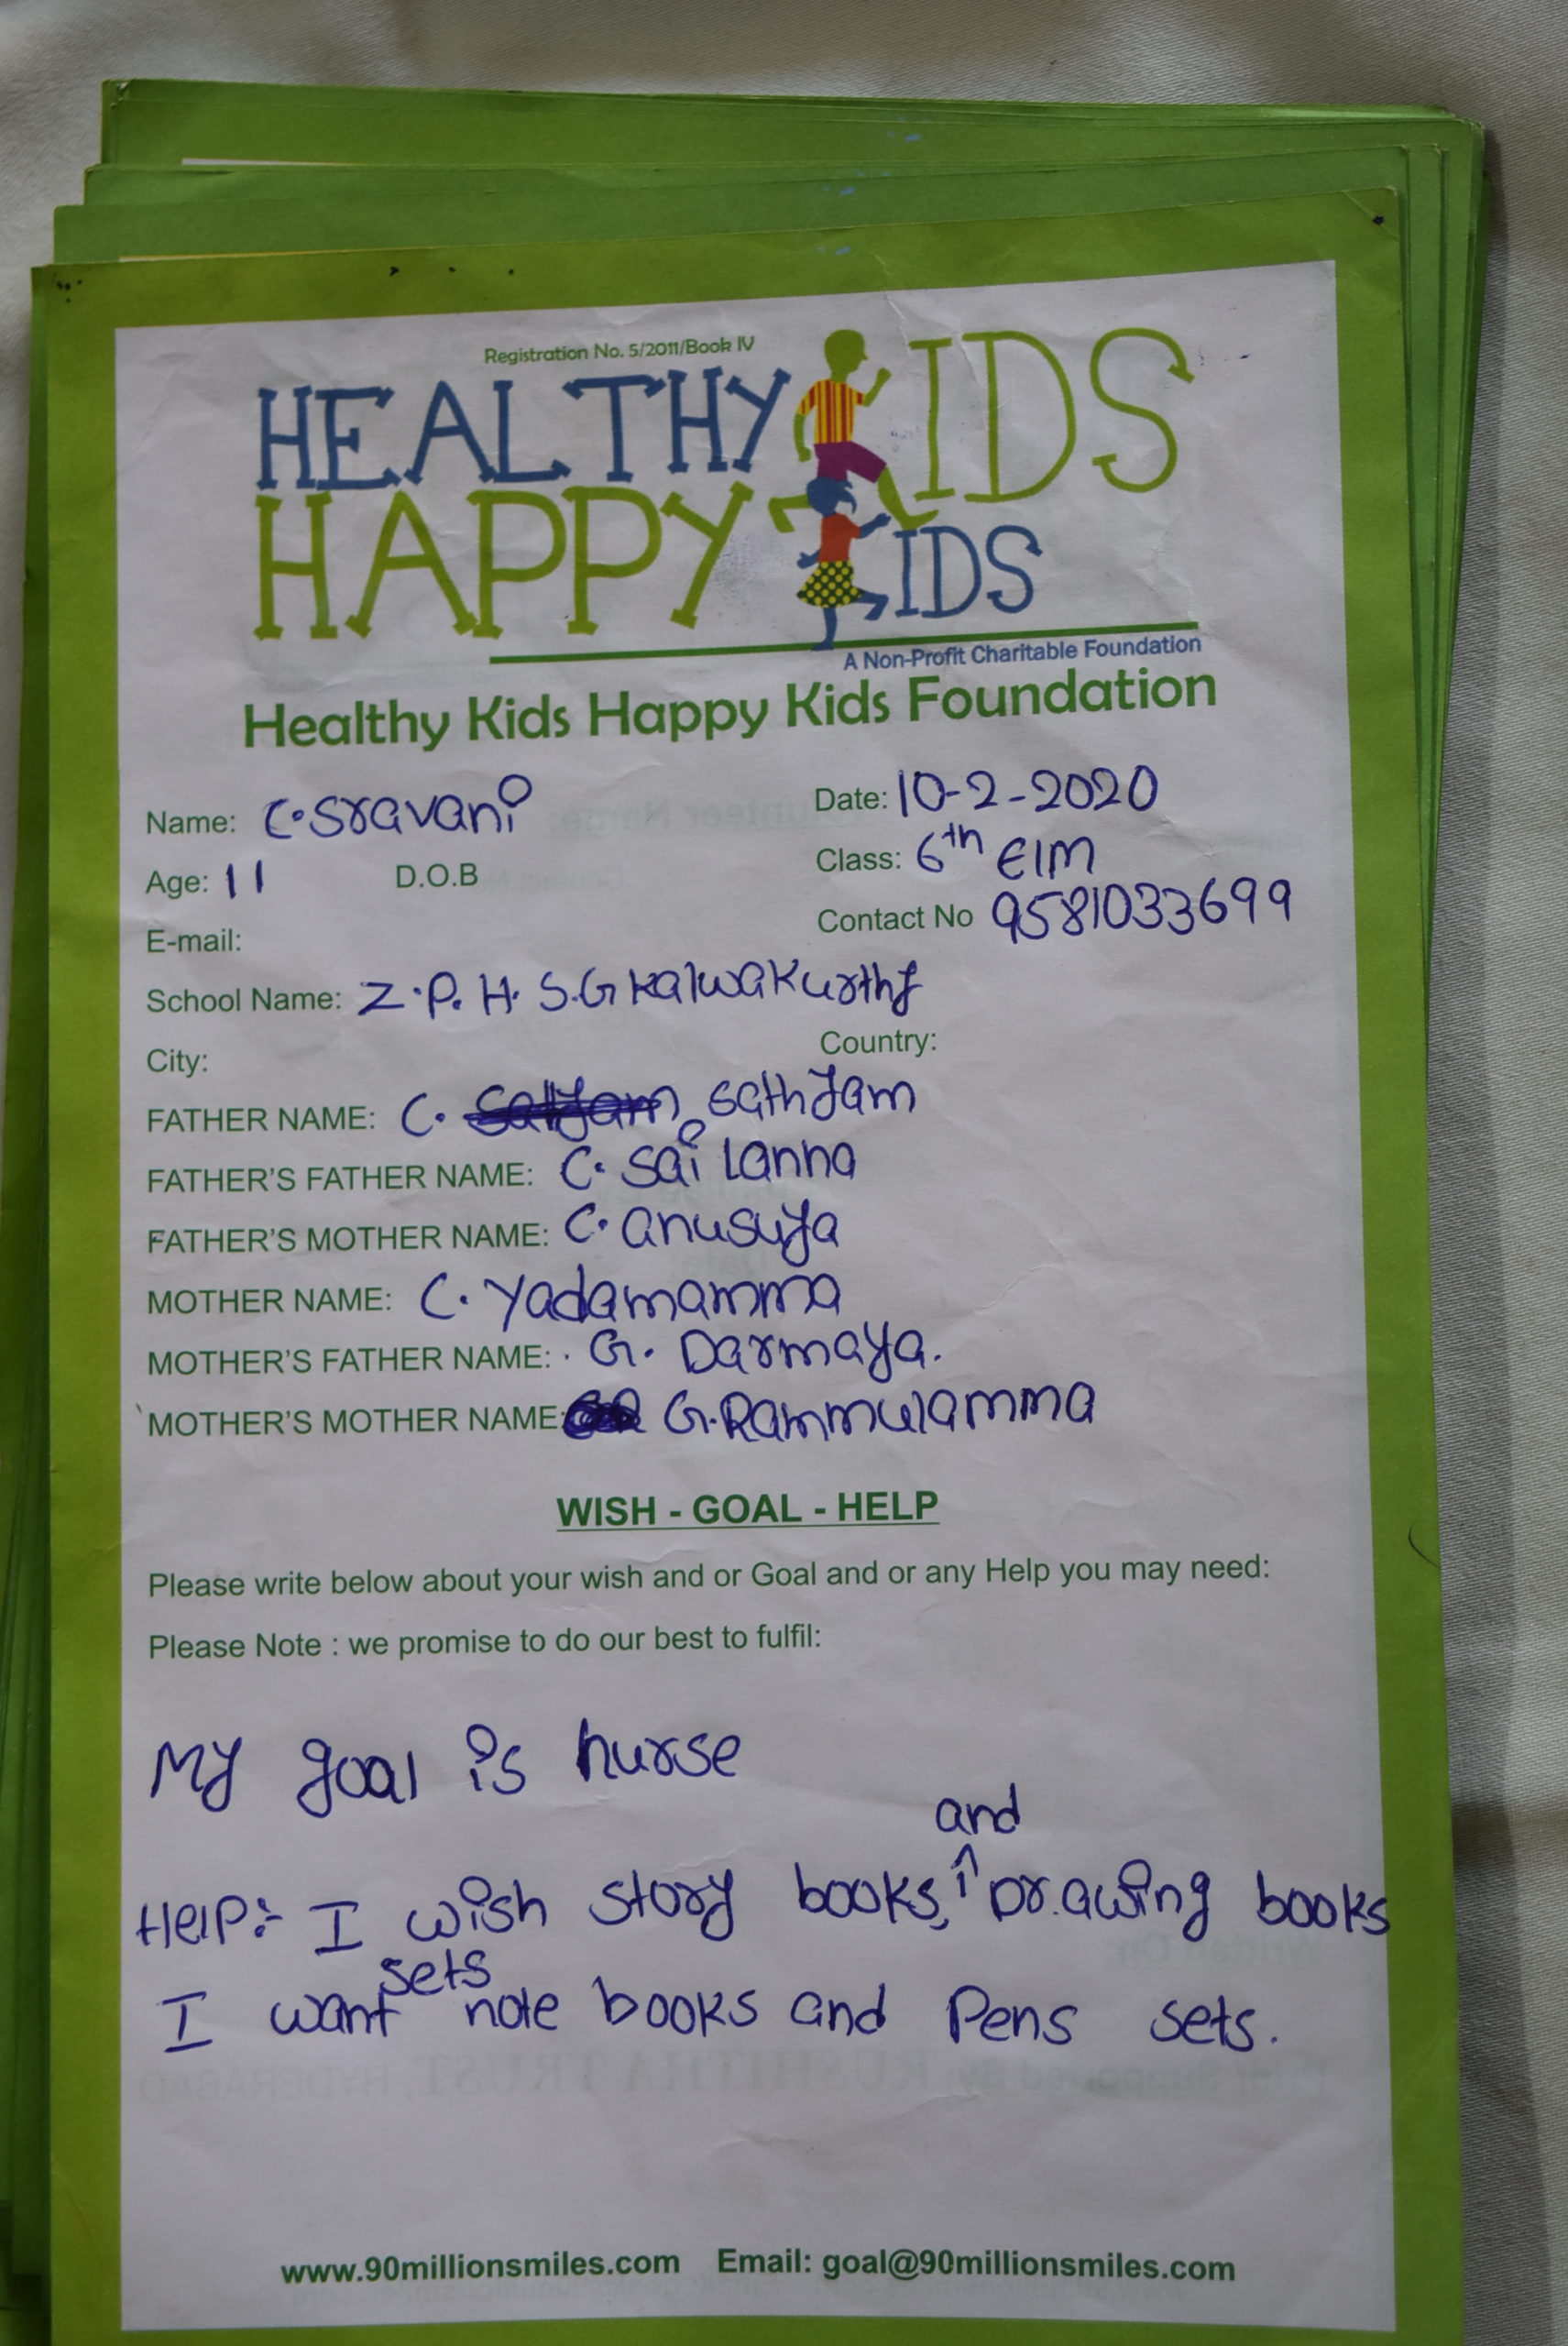 Registration No. 5/2011/Book IV
HEALTHY KIDS
HAPPY KIDS
A Non-Profit Charitable Foundation
Healthy Kids Happy Kids Foundation
Name: C. Sravani Date: 10-2-2020
Age: 11 D.O.B Class: 6th EIM
E-mail: Contact No 9581033699
School Name: Z.P.H.S.G kalwakurthy
City: Country:
FATHER NAME: C. Satyam sathyam
FATHER'S FATHER NAME: C. Sai Lanna
FATHER'S MOTHER NAME: C. anusuya
MOTHER NAME: C. Yadamamma
MOTHER'S FATHER NAME: G. Darmaya.
MOTHER'S MOTHER NAME: G. Rammulamma
WISH - GOAL - HELP
Please write below about your wish and or Goal and or any Help you may need:
Please Note : we promise to do our best to fulfil:
My goal is nurse
Help:- I wish story books, and Drawing books
I want sets note books and Pens sets.
www.90millionsmiles.com Email: goal@90millionsmiles.com